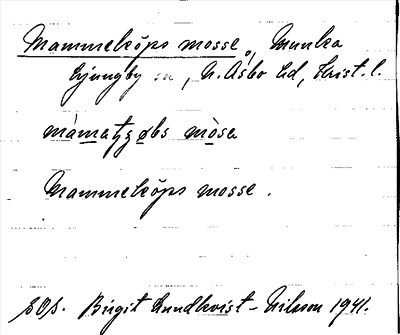 Mammeköps mosse, Munka
Ljungby sn, N. Åsbo hd, Krist. l.
màmatȥøbs mòsa
Mammeköps mosse.
SOS. Birgit Lundkvist-Nilsson 1941.